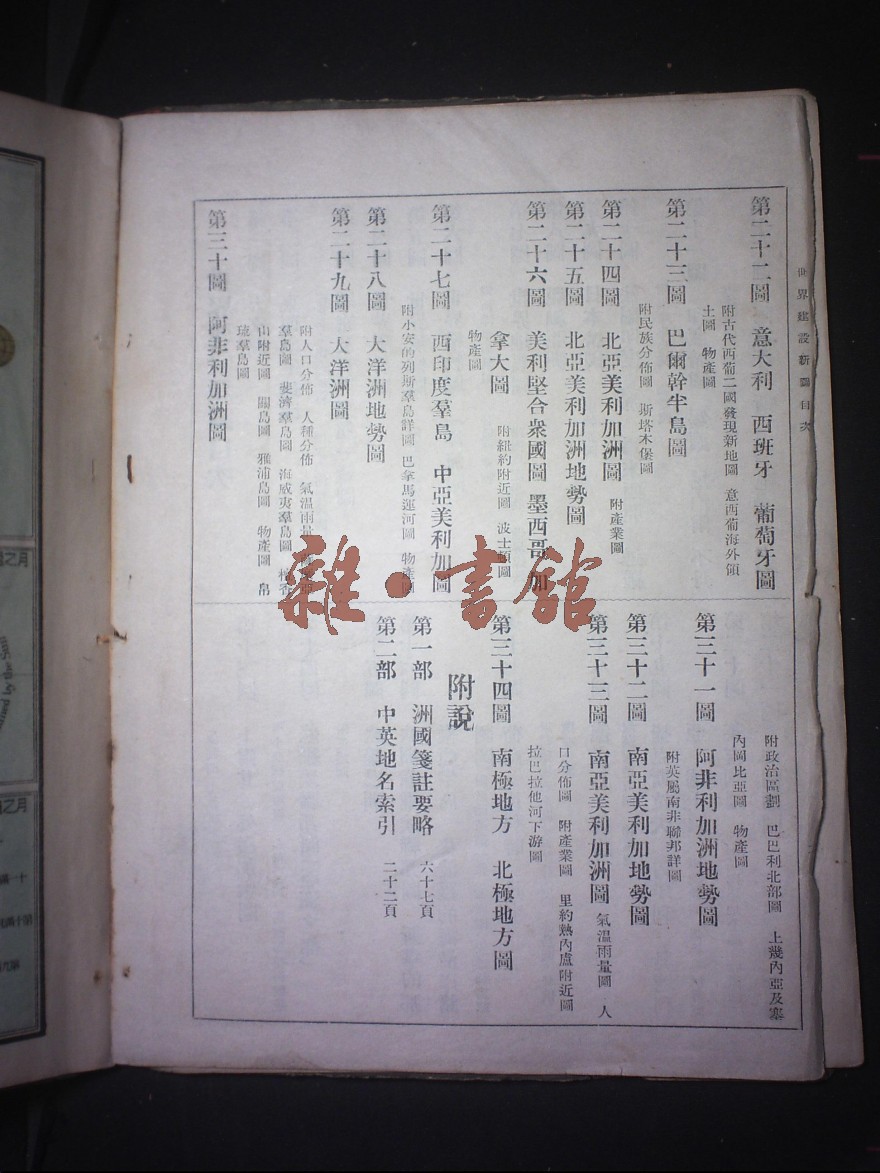 世界建設新圖目次
第二十二圖　意大利　西班牙　葡萄牙圖
附古代西葡二國發現新地圖　意西葡海外領
土圖　物產圖
第二十三圖　巴爾幹半島圖
附民族分佈圖　斯塔木堡圖
第二十四圖　北亞美利加洲圖　附產業圖
第二十五圖　北亞美利加洲地勢圖
第二十六圖　美利堅合衆國圖　墨西哥　加
拿大圖　附紐約附近圖　波士頓圖
物產圖
第二十七圖　西印度羣島　中亞美利加圖
附小安的列斯羣島詳圖　巴拿馬運河圖　物產圖
第二十八圖　大洋洲地勢圖
第二十九圖　大洋洲圖
附人口分佈　人種分佈　氣溫雨量
羣島圖　斐濟羣島圖　海威夷羣島圖　檀香
山附近圖　關島圖　雅浦島圖　物產圖　帛
琉羣島圖
第三十圖　阿非利加洲圖
附政治區劃　巴巴利北部圖　上幾內亞及塞
內岡比亞圖　物產圖
第三十一圖　阿非利加洲地勢圖
附英屬南非聯邦詳圖
第三十二圖　南亞美利加地勢圖
第三十三圖　南亞美利加洲圖　氣溫雨量圖　人
口分佈圖　附產業圖　里約熱內盧附近圖
拉巴拉他河下游圖
第三十四圖　南極地方　北極地方圖
附說
第一部　洲國箋註要略　六十七頁
第二部　中英地名索引　二十二頁
雜·書館